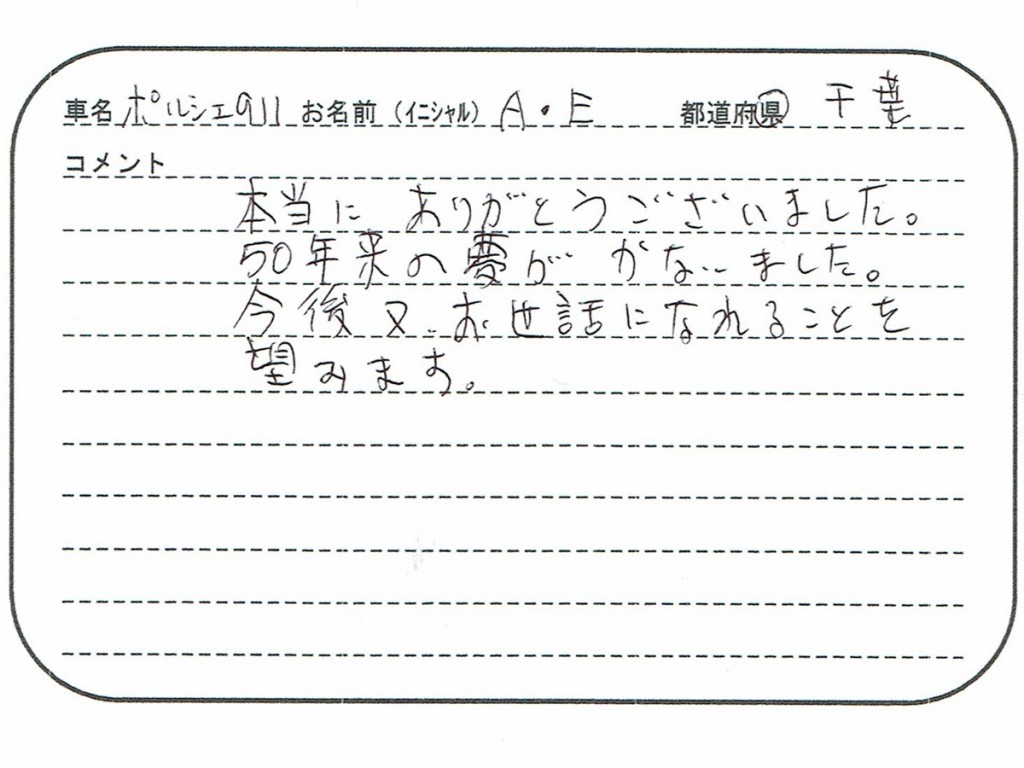 車名 ポルシェ911 お名前（イニシャル） A・E 都道府県 千葉
コメント
本当に ありがとうございました。
50年来の夢が かないました。
今後又 お世話になれることを
望みます。